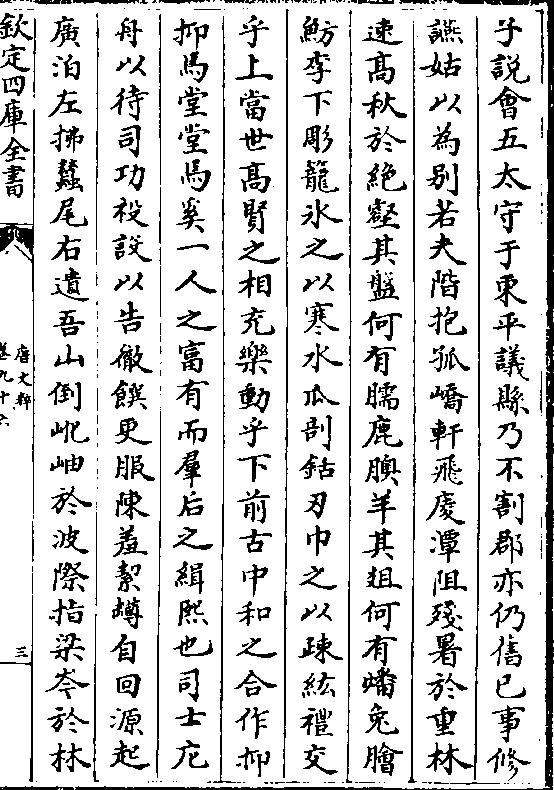 子說會五太守于東平議縣乃不割郡亦仍舊已事修
讌姑以為别若夫階抱孤嶠軒飛慶潭阻殘暑於重林
速高秋於絶壑其盤何有臑鹿腝羊其俎何有蟠兔膾
魴李下彫籠氷之以寒水瓜剖銛刃巾之以疎絃禮交
乎上當世髙賢之相充樂動乎下前古中和之合作抑
抑焉堂堂焉奚一人之富有而羣后之緝熙也司士庀
舟以待司功祋設以告徹饌更服陳羞絜罇自回源起
廣泊左拂蠶尾右遺吾山倒屼岫於波際指梁岑於林
欽定四庫全書
唐文粹
卷九十六
三